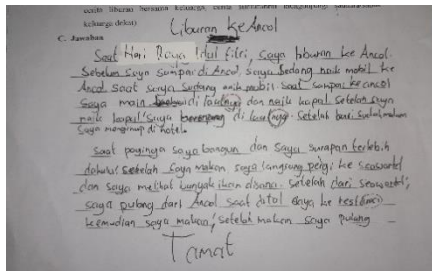 cerita liburan bersama keluarga, cerita
keluarga dekat)
Liburan Ke Ancol
C. Jawaban
Saat Hari Raya Idul fitri, saya liburan ke Ancol.
Sebelum saya sampai di Ancol, saya sedang naik mobil ke
Ancol saat saya sedang naik mobil. Saat sampai ke ancol
saya main di lautnya dan naik kapal. Setelah saya
naik kapal saya berenang di lautnya. Setelah hari sudah malam
saya menginap di hotel.
Saat paginya saya bangun dan saya sarapan terlebih
dahulu. Setelah saya makan saya langsung pergi ke seaworld
dan saya melihat banyak ikan disana. Setelah dari seaworld,
saya pulang dari Ancol saat di tol saya ke rest
kemudian saya makan, Setelah makan saya pulang
Tamat